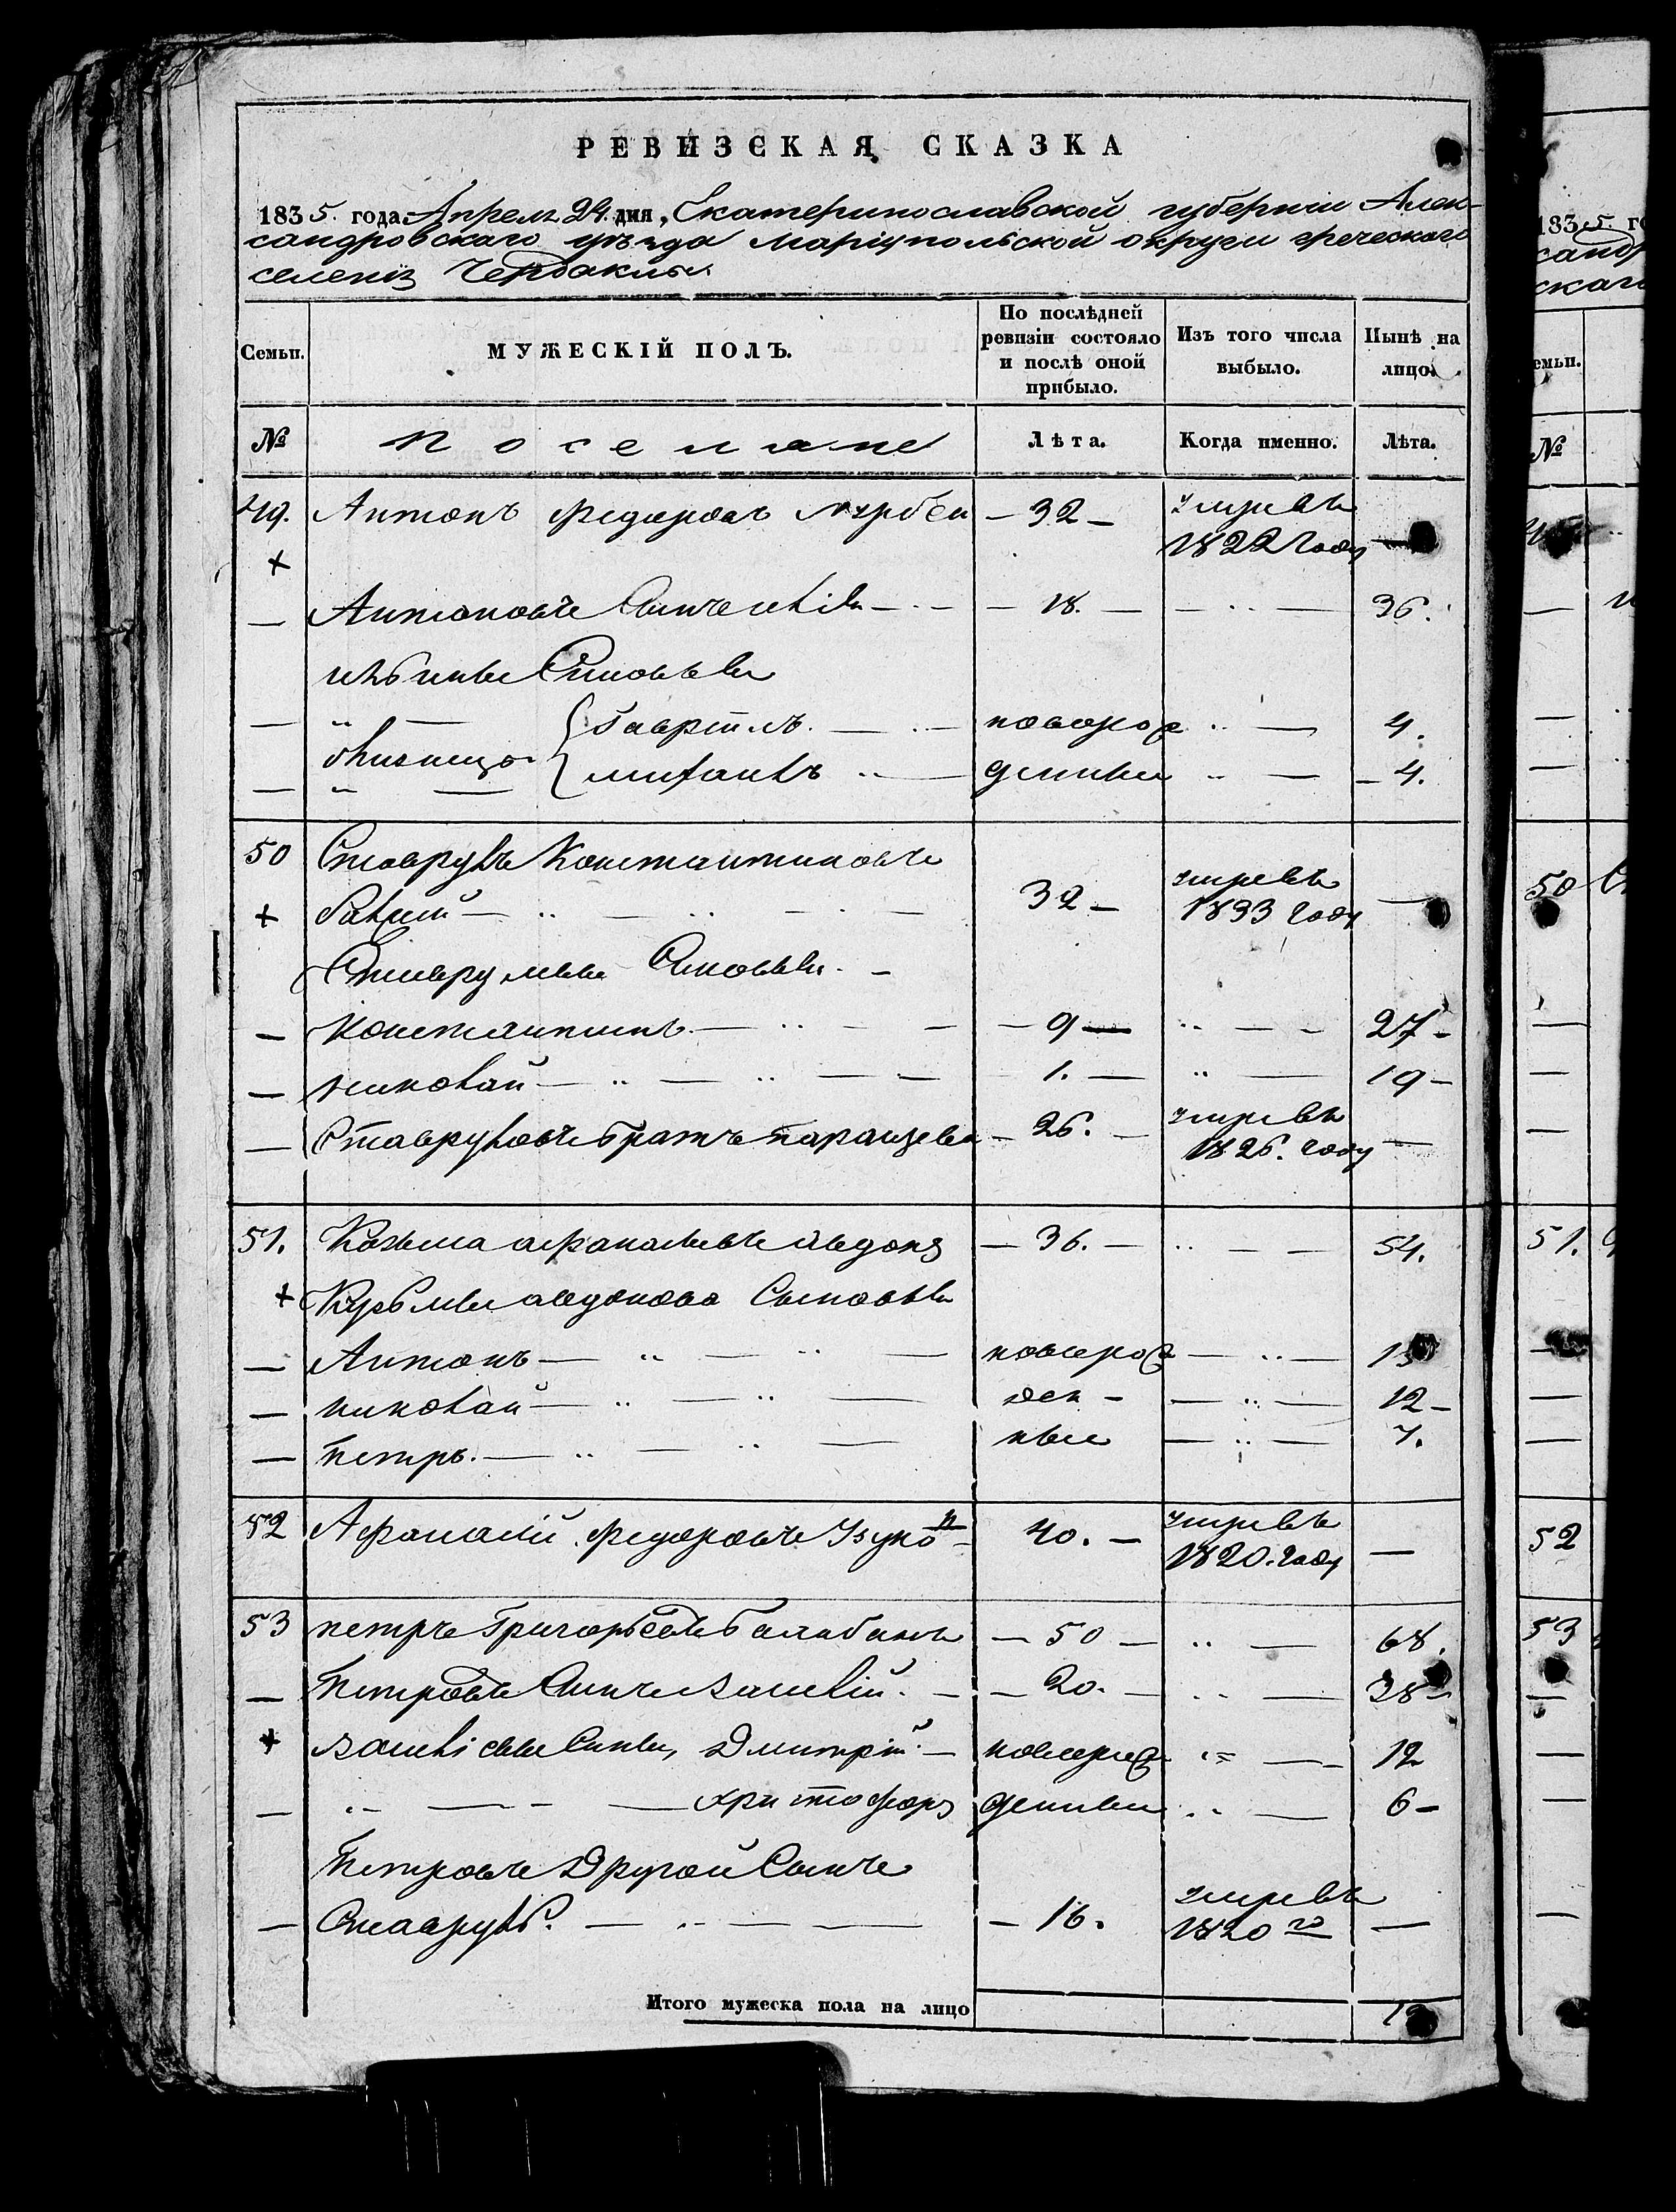 РЕВИЗСКАЯ СКАЗКА
1835. года Апреля 24. дня, Екатеринославской губернии Алек-
сандровскаго уѣзда Мариупольской округи греческаго
селения Чердаклы
Семьи. МУЖЕСКІЙ ПОЛЪ. По послѣдней ревизіи состояло и послѣ оной прибыло. Изъ того числа выбыло. Нынѣ на лицо.
№ Поселяне Лѣта. Когда именно. Лѣта.
49. Антонъ Федоровъ — 32 — умревъ
1822 году —
+
— Антоновъ Сынъ — 18. — — 36.
Сыновьи
— Гавріилъ. новорож 4.
близнецы
— михаилъ денныи — 4.
50 Ставрулъ Константиновъ
+ 32 — умревъ 1833 году —
Ставрулы Сыновьи. —
— Константинъ — 9 — 27 —
— николай — 1. — 19 —
— Ставруловъ братъ — 26. — умревъ
1826. году —
51. Козьма афанасьевъ авдонъ — 36. — 54.
+ Кузьмы авдонова Сыновьи
— Антонъ новорож
— николай ден — 12 —
— петръ. ныи 7.
52 Афанасій федоровъ 40. — умревъ
1820. году —
53 петръ Григорьевъ балабанъ — 50 — 68.
— Петровъ Сынъ василій. — — 20. — 38 —
+ василіевы Сыны, Дмитрій — новорож 12
— христофоръ денныи 6 —
Петровъ Другой Сынъ
— Ставрулъ. — 16. умревъ
1820 го —
Итого мужеска пола на лицо
1835. го
санд
скаго
емьи.
№
50
51.
52
53